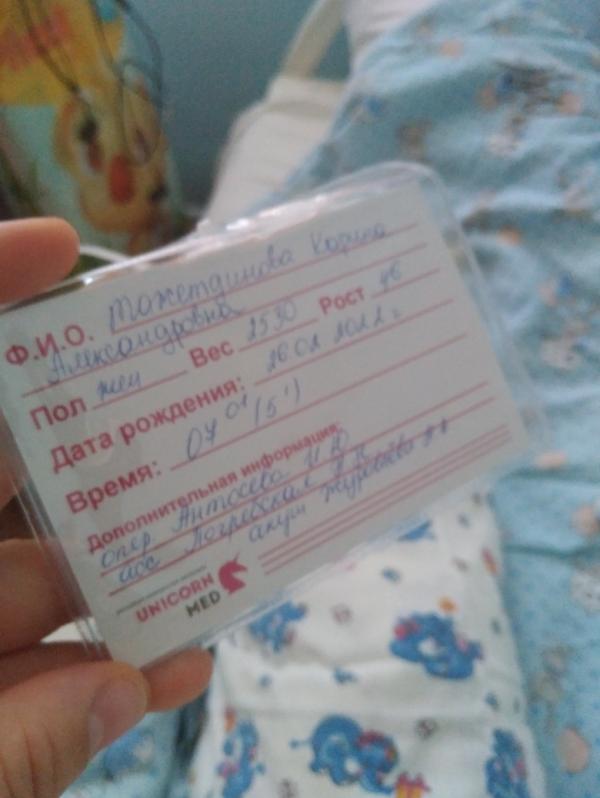 Ф.И.О. Можетдинова Карина
Александровна
Пол жен Вес 2530 Рост 46
Дата рождения: 26.02 2022 г
Время: 07 01 (5')
Дополнительная информация:
опер. Антосева Н
асс Погребская
акуш Журавлёва
UNICORN
MED